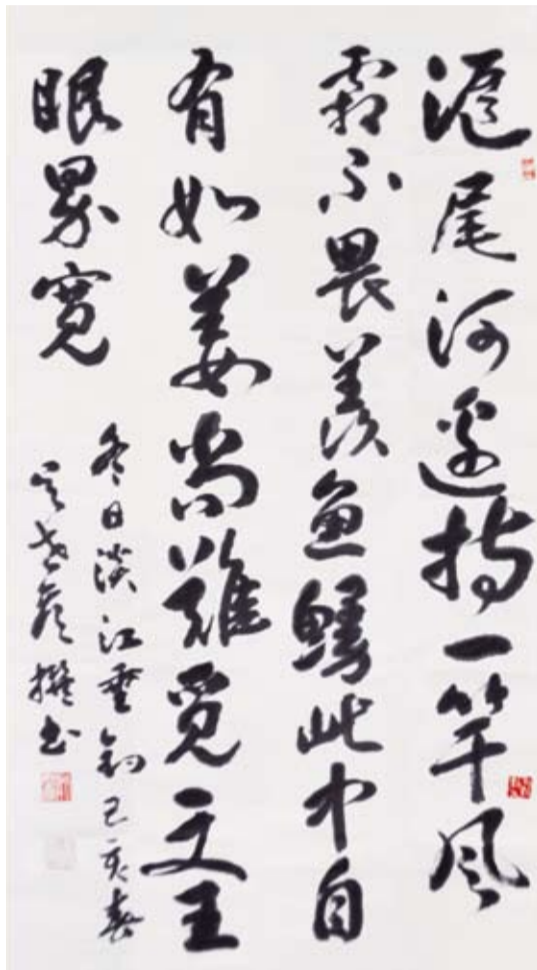 滬尾河邊持一竿風
霜不畏羨魚鰻此中自
有如姜尚難覓文王
眼界寬
冬日淡江垂釣己亥春
撰書